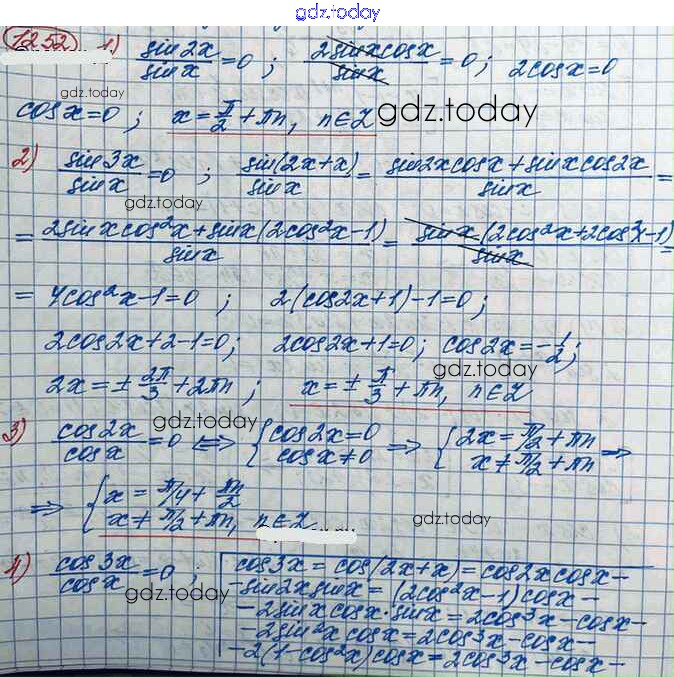 gdz.today
1252 1) sin2x/sinx = 0 ; 2sinxcosx/sinx = 0 ; 2cosx=0
gdz.today
cosx=0 ; x = π/2 + πn, n∈Z gdz.today
2) sin3x/sinx = 0 ; sin(2x+x)/sinx = sin2xcosx + sinxcos2x/sinx =
gdz.today
= 2sinxcos²x + sinx(2cos²x-1)/sinx = sinx(2cos²x+2cos²x-1)/sinx =
= 4cos²x-1=0 ; 2(cos2x+1)-1=0 ;
2cos2x+2-1=0 ; 2cos2x+1=0 ; cos2x=-1/2 ;
gdz.today
2x = ± 2π/3 + 2πn ; x = ± π/3 + πn, n∈Z
gdz.today
3) cos2x/cosx = 0 ⇔ { cos2x=0 cosx≠0 ⇒ { 2x = π/2 + πn x ≠ π/2 + πn ⇒
gdz.today
⇒ { x = π/4 + πn/2 x ≠ π/2 + πn, n∈Z
gdz.today
4) cos3x/cosx = 0 ; cos3x = cos(2x+x) = cos2xcosx -
- sin2xsinx = (2cos²x-1)cosx -
gdz.today
- 2sinxcosx·sinx = 2cos³x - cosx -
- 2sin²xcosx = 2cos³x - cosx -
- 2(1-cos²x)cosx = 2cos³x - cosx -